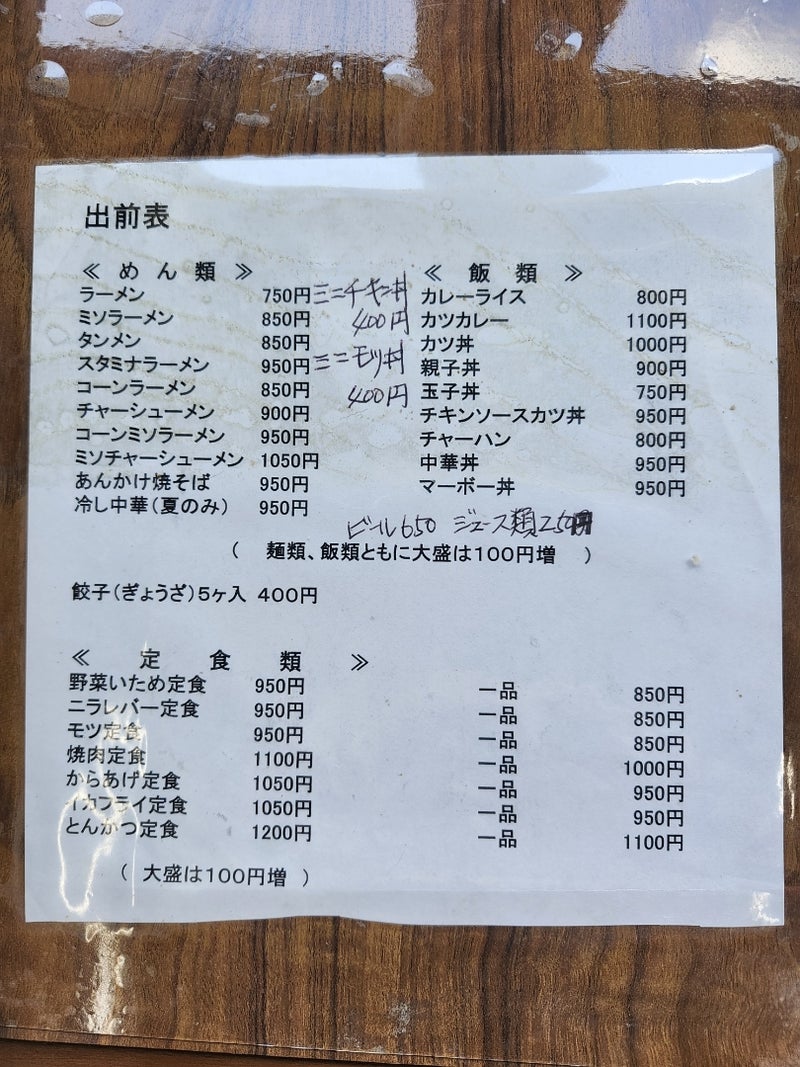 出前表
≪ めん類 ≫
ラーメン 750円
ミソラーメン 850円
タンメン 850円
スタミナラーメン 950円
コーンラーメン 850円
チャーシューメン 900円
コーンミソラーメン 950円
ミソチャーシューメン 1050円
あんかけ焼そば 950円
冷し中華(夏のみ) 950円
ミニチキン丼
400円
ミニモツ丼
400円
≪ 飯類 ≫
カレーライス 800円
カツカレー 1100円
カツ丼 1000円
親子丼 900円
玉子丼 750円
チキンソースカツ丼 950円
チャーハン 800円
中華丼 950円
マーボー丼 950円
ビール650 ジュース類250円
( 麺類、飯類ともに大盛は100円増 )
餃子(ぎょうざ)5ヶ入 400円
≪ 定食類 ≫
野菜いため定食 950円 一品 850円
ニラレバー定食 950円 一品 850円
モツ定食 950円 一品 850円
焼肉定食 1100円 一品 1000円
からあげ定食 1050円 一品 950円
イカフライ定食 1050円 一品 950円
とんかつ定食 1200円 一品 1100円
( 大盛は100円増 )